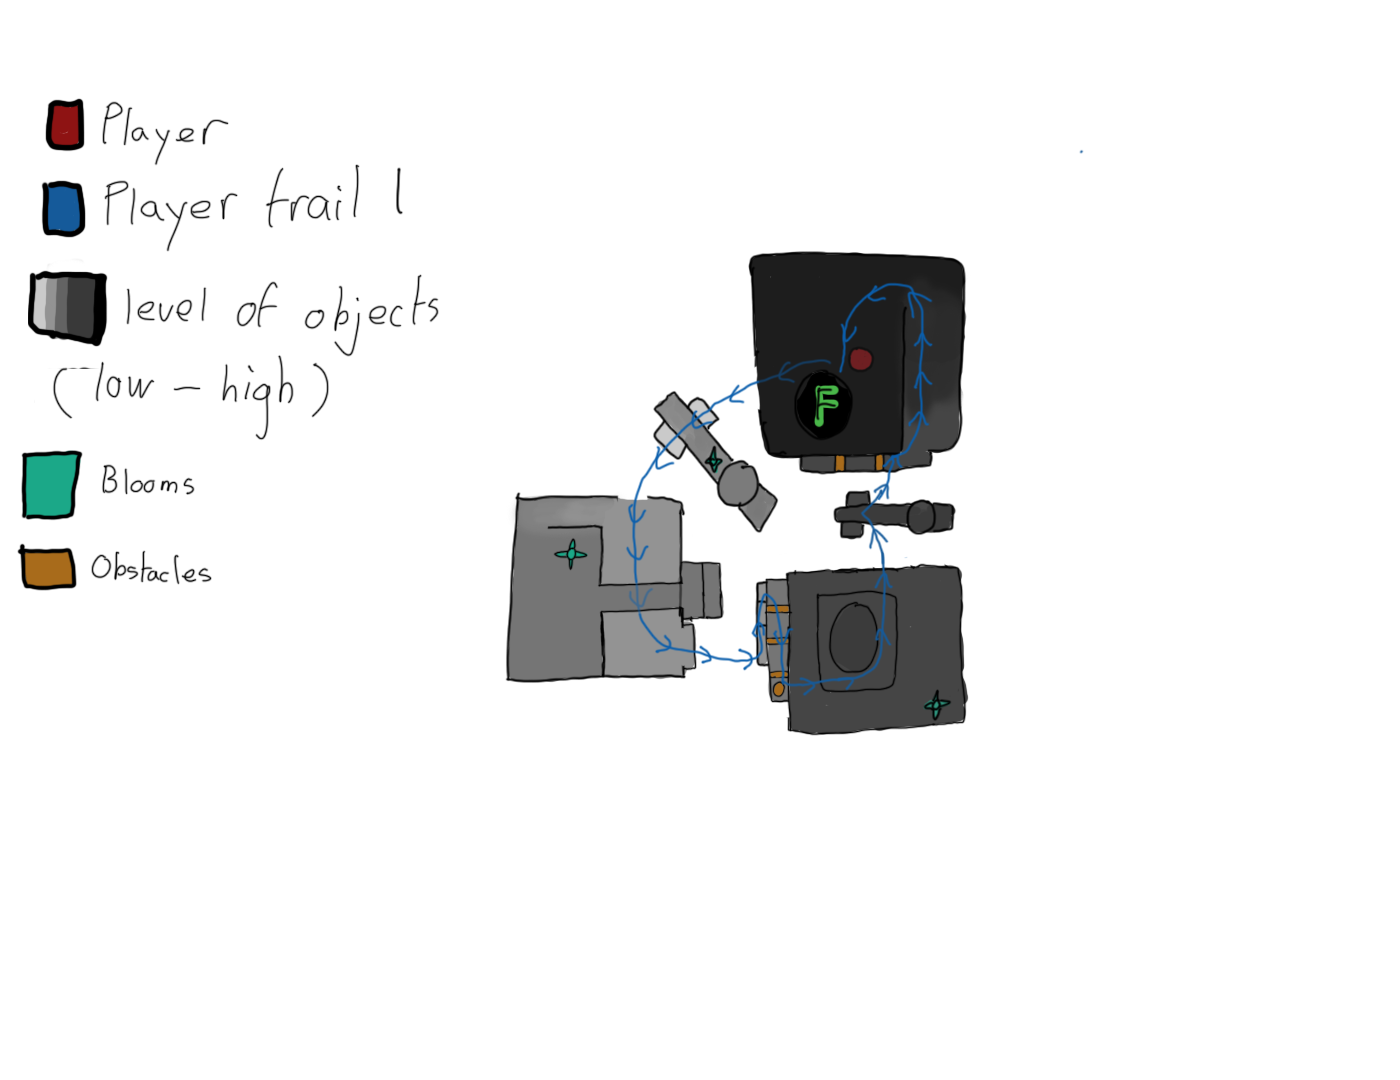 Player
Player trail 1
level of objects
(low - high)
Blooms
Obstacles
F